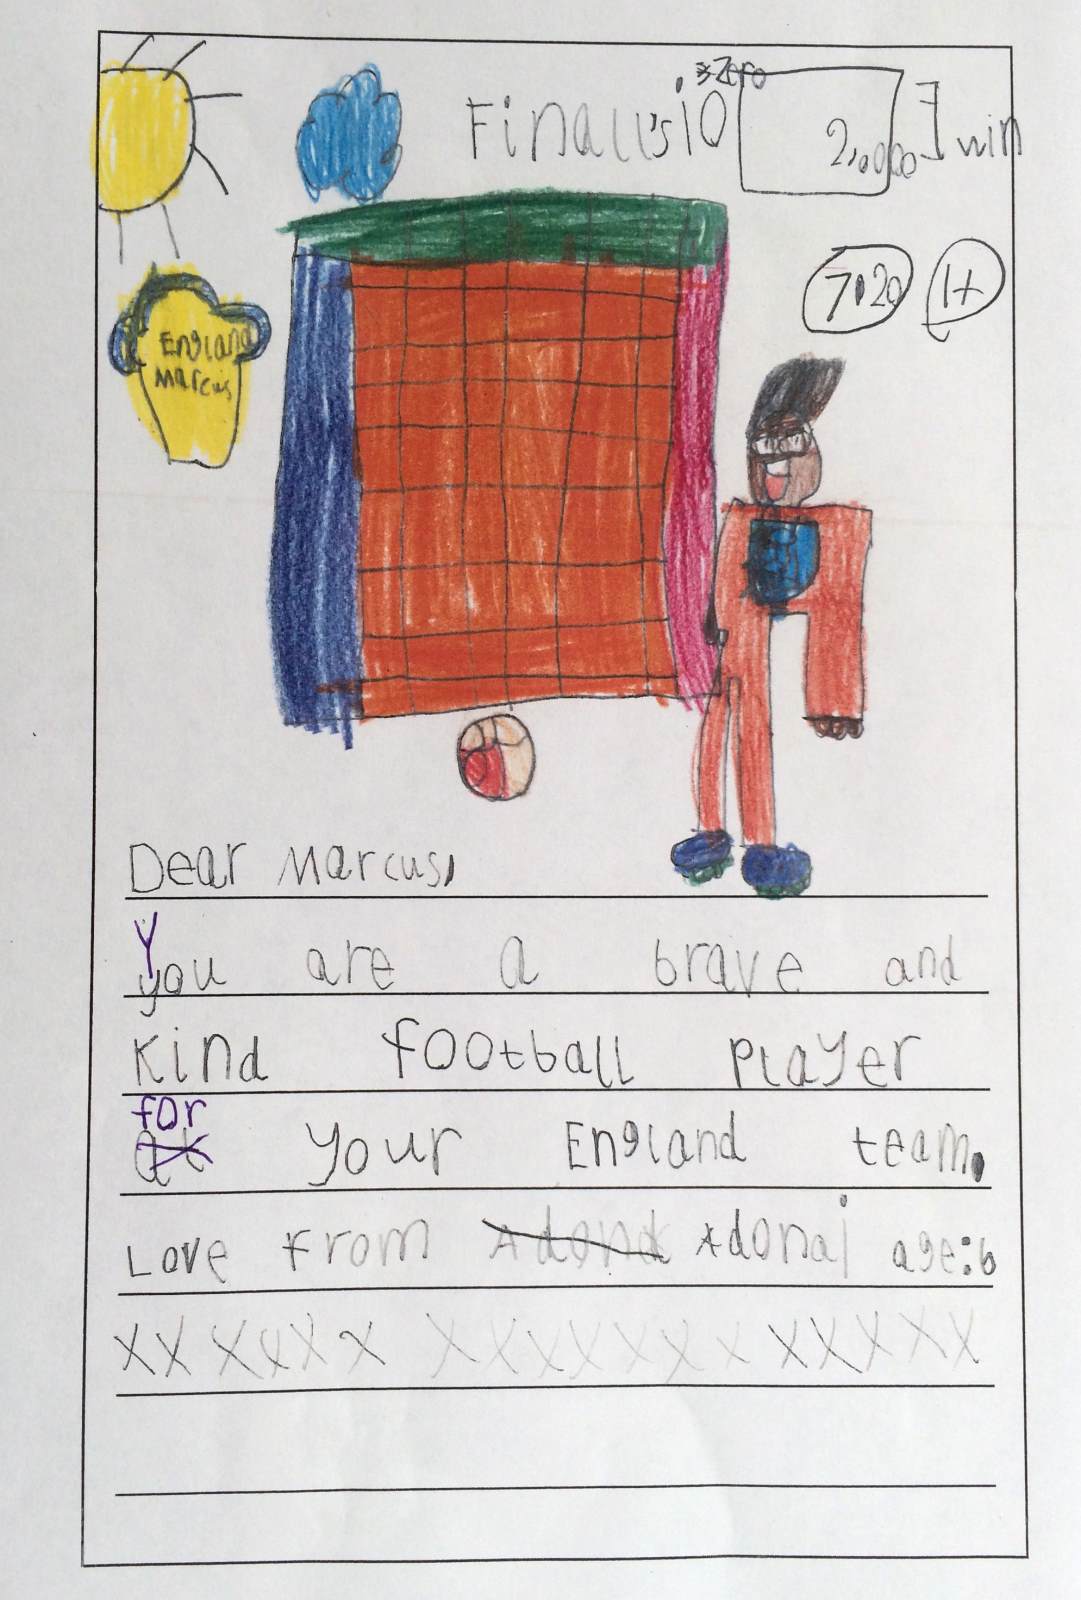 Zero
2,000
win
7:20
England
Marcus
Dear Marcus,
You are a brave and
kind football player
for
at your England team.
Love from Adonai age:6
XX XXXX XXXXXXX XXXXX